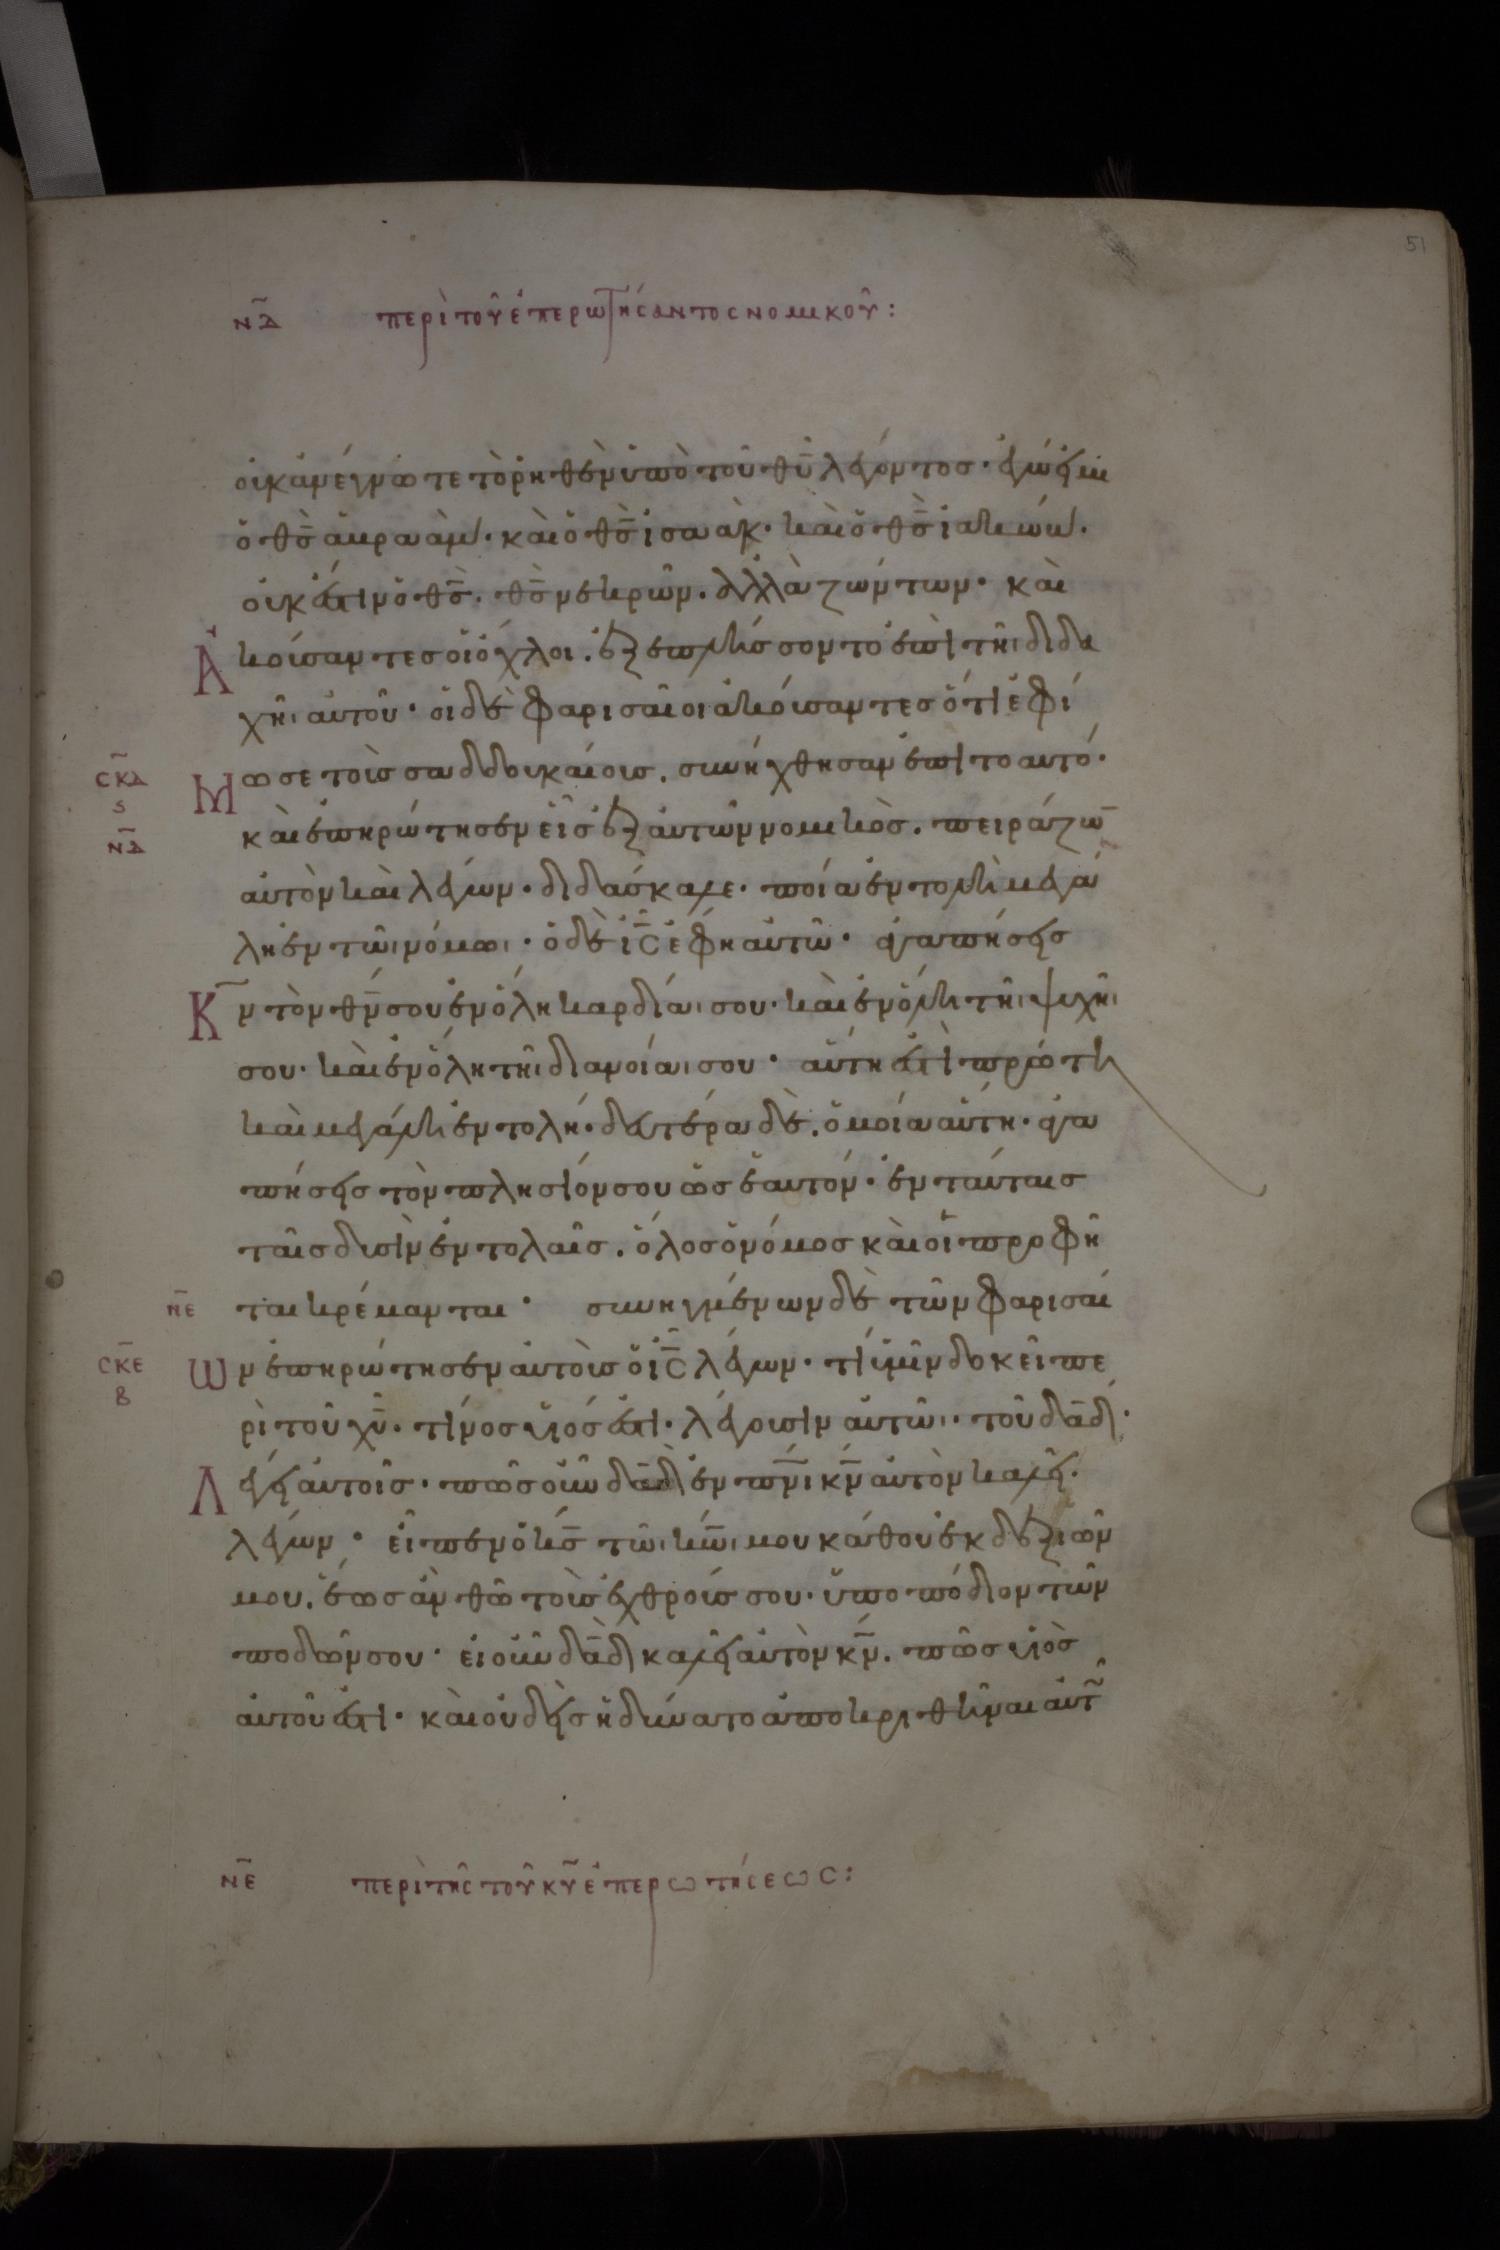 51
νδ̅ περὶ τοῦ ἐπερωτήσαντος νομικοῦ:
οὐκ ἀνέγνωτε τὸ ῥηθὲν ὑπὸ τοῦ θ̅υ̅ λέγοντος· ἐγώ εἰμι
ὁ θ̅ς̅ ἀβραὰμ· καὶ ὁ θ̅ς̅ ἰσαάκ· καὶ ὁ θ̅ς̅ ἰακώβ·
οὐκ ἔστιν ὁ θ̅ς̅. θ̅ς̅ νεκρῶν. ἀλλὰ ζώντων· καὶ
Ἀκούσαντες οἱ ὄχλοι. ἐξεπλήσσοντο ἐπὶ τῆι διδα
χῆι αὐτοῦ· οἱ δὲ φαρισαῖοι ἀκούσαντες ὅτι ἐφί
σκδ̅ ς νδ̅
Μωσε τοὺς σαδδουκαίους. συνήχθησαν ἐπὶ τὸ αὐτό·
καὶ ἐπηρώτησεν εἷς ἐξ αὐτῶν νομικὸς. πειράζω̅
αὐτὸν καὶ λέγων· διδάσκαλε· ποία ἐντολὴ μεγά
λη ἐν τῶι νόμωι· ὁ δὲ ι̅ς̅ ἔφη αὐτῶ· ἀγαπήσεις
Κ̅ν τὸν θ̅ν̅ σου ἐν ὅλη καρδίαι σου· καὶ ἐν ὅλη τῆι ψυχῆι
σου· καὶ ἐν ὅλη τῆι διανοίαι σου· αὕτη ἐστὶ πρώτη
καὶ μεγάλη ἐντολή· δευτέρα δὲ. ὁμοία αὕτη· ἀγα
πήσεις τὸν πλησίον σου ὡς ἑαυτόν· ἐν ταύταις
ταῖς δυσὶν ἐντολαῖς. ὅλος ὁ νόμος καὶ οἱ προφῆ
νε̅ ται κρέμανται· συνηγμένων δὲ τῶν φαρισαί
σκε̅ β
Ων ἐπηρώτησεν αὐτοὺς ὁ ι̅ς̅ λέγων· τί ὑμῖν δοκεῖ πε
ρὶ τοῦ χ̅υ̅. τίνος υἱός ἐστι· λέγουσιν αὐτῶι· τοῦ δ̅α̅δ̅·
Λέγει αὐτοῖς· πῶς οὖν δ̅α̅δ̅ ἐν π̅ν̅ι̅ κ̅ν̅ αὐτὸν καλεῖ·
λέγων· εἶπεν ὁ κ̅ς̅ τῶι κ̅ω̅ι μου κάθου ἐκ δεξιῶν
μου. ἕως ἂν θῶ τοὺς ἐχθρούς σου· ὑποπόδιον τῶν
ποδῶν σου· εἰ οὖν δ̅α̅δ̅ καλεῖ αὐτὸν κ̅ν̅. πῶς υἱὸς
αὐτοῦ ἐστι· καὶ οὐδεὶς ἠδύνατο ἀποκριθῆναι αὐτ
νε̅ περὶ τῆς τοῦ κ̅υ̅ ἐπερωτήσεως: